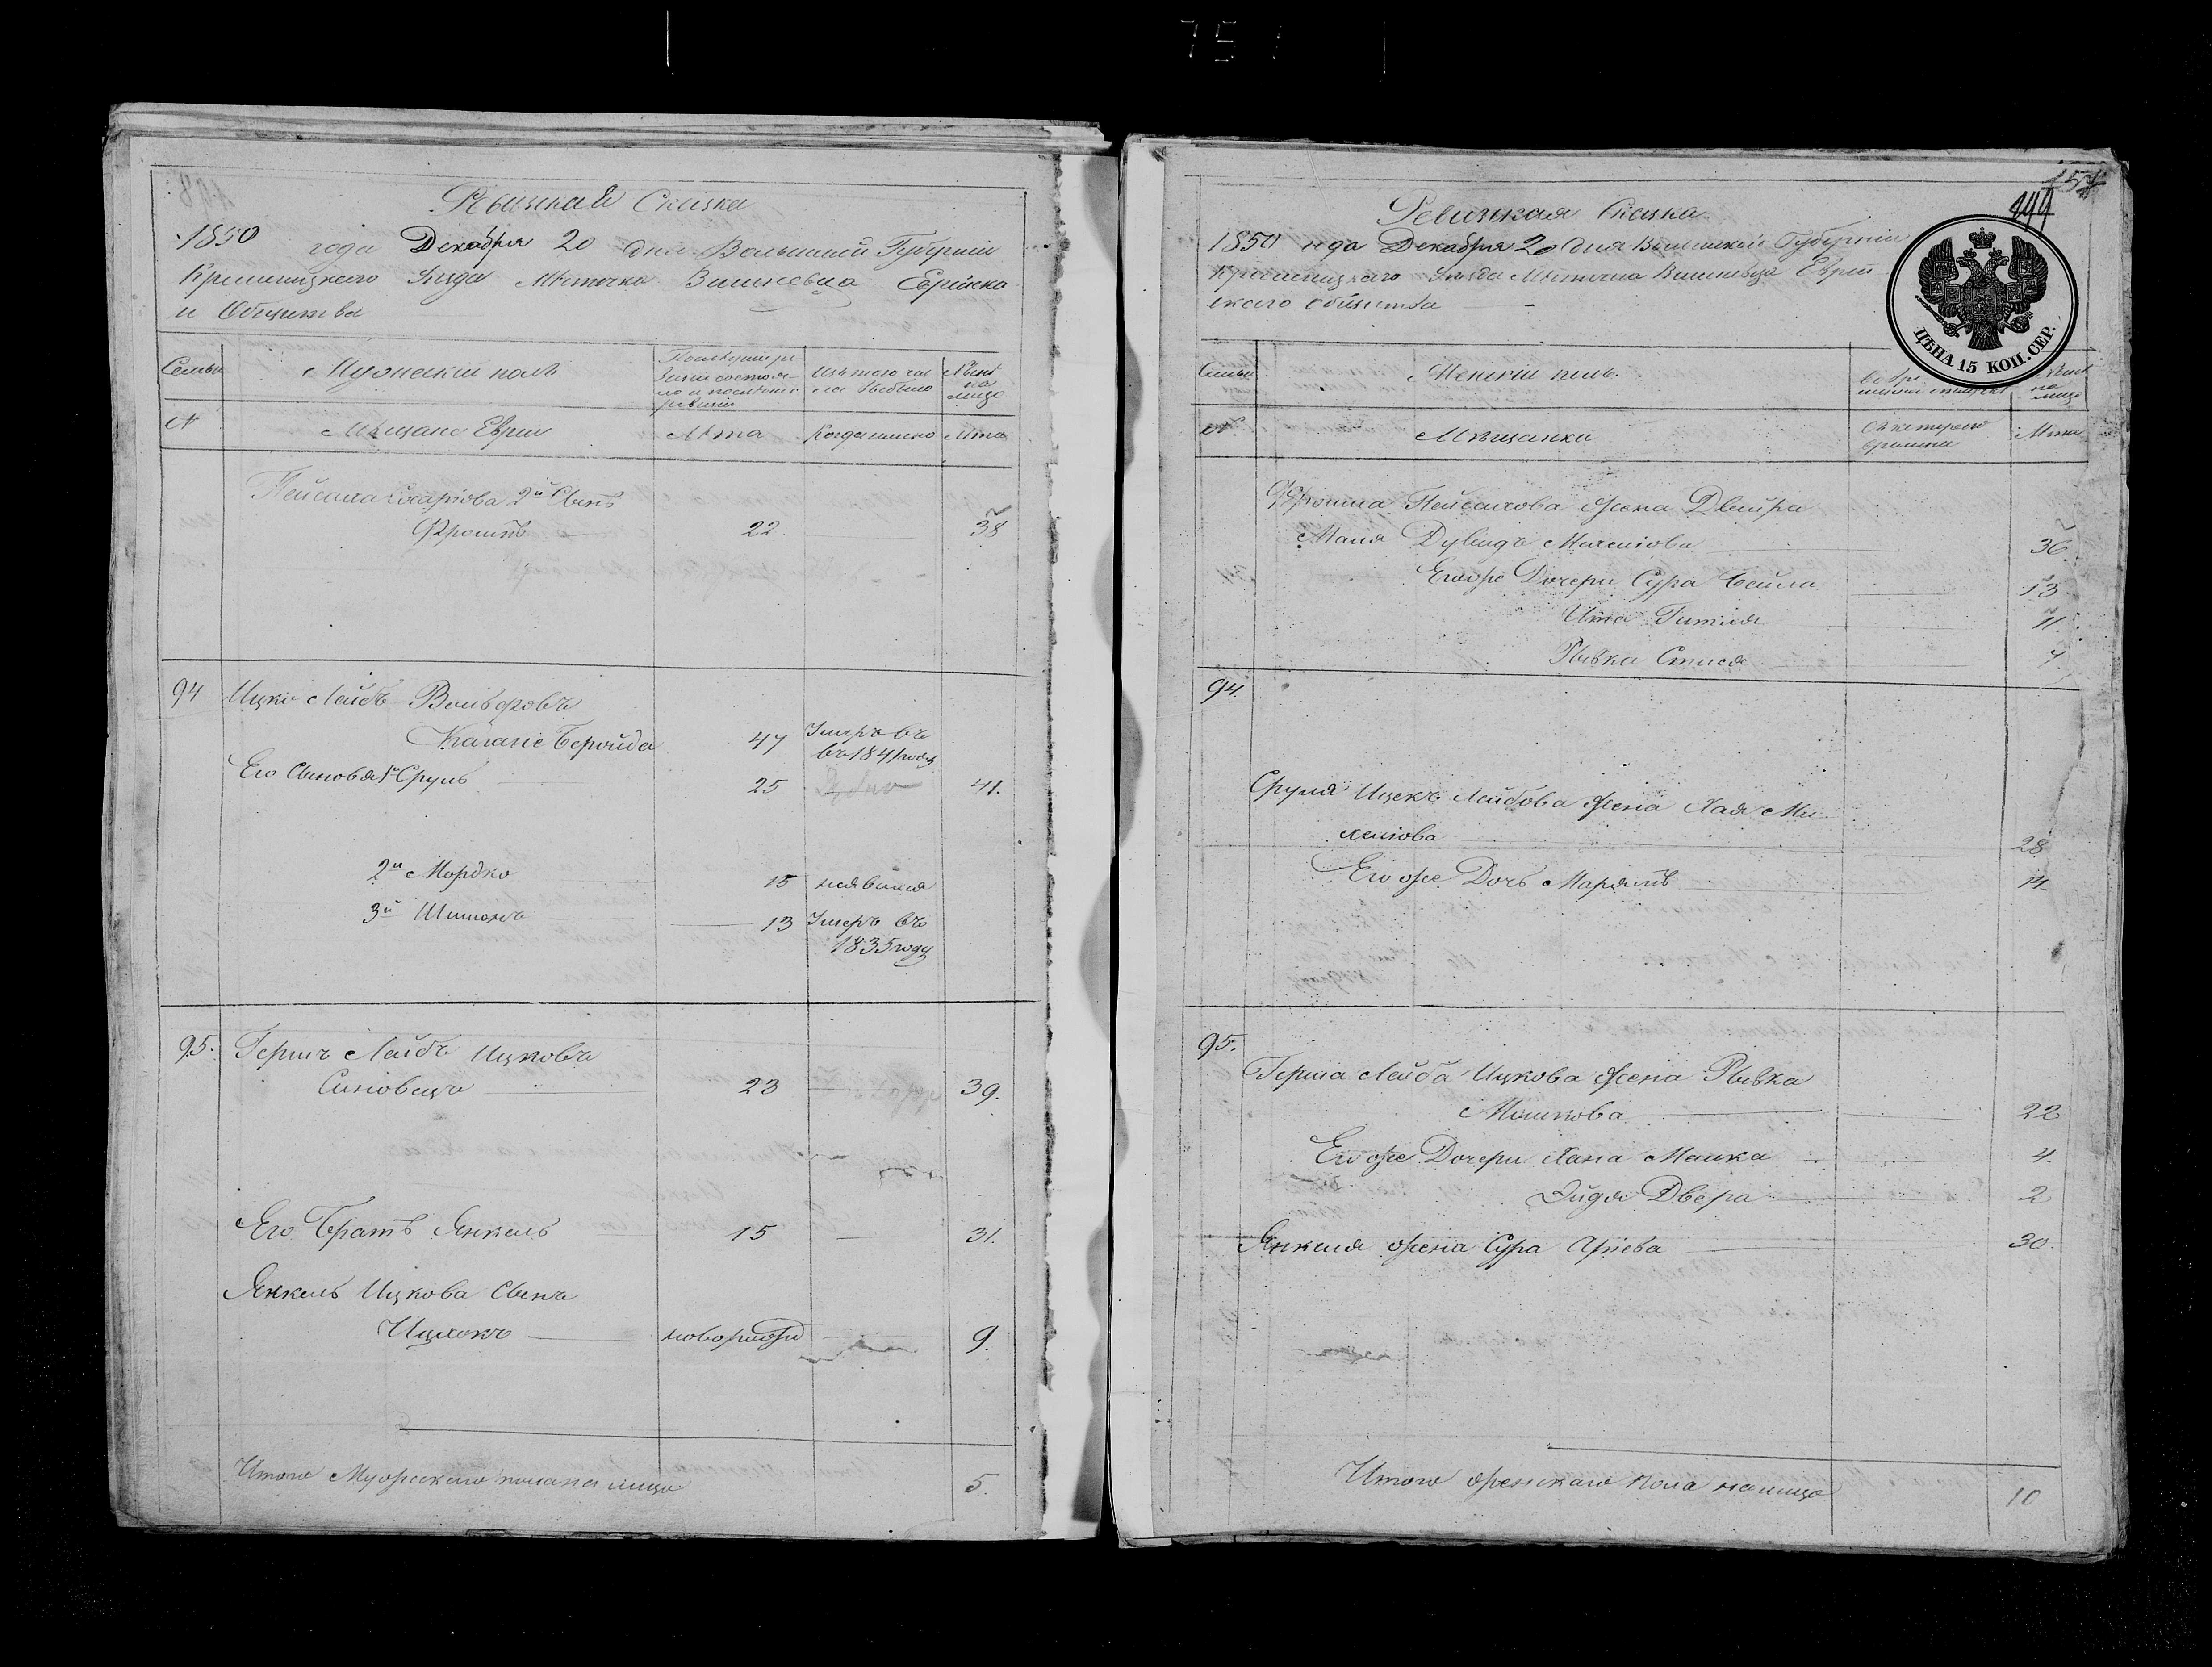 751
Ревизкая Сказка
1850 года Декабря 20 дня Волынской Губернии
Кременецкого Уезда Местечка Вишневца Еврейска
и Общества
Семьи
Мужеский полъ
Изъ того чи
сла выбыло
Ныне
на
лицо
N
Мещане Евреи
Лета
Когда именно
Лета
Пейсаха 2й Сынъ
Фроимъ 22 38
94 Ицко Лейбъ Вольфовъ
47 Умеръ въ
въ 1841 году
Его Сыновья 1й Сруль 25 41.
2й Мордко 15 неявился
3й Шимонъ 13 Умеръ въ
1835 году
95. Гершъ Лейбъ Ицковъ
Синовецъ 23 39.
Его Братъ Янкель 15 31.
Янкель Ицкова Сынъ
Ицхокъ новорожд 9.
Итого Мужескаго пола на лицо 5.
157
499
Ревизкая Сказка
1850 года Декабря 20 дня Волынской Губернии
Кременецкаго Уезда Местечка Вишневца Еврей
скаго общества
ЦѢНА 15 КОП. СЕР.
Семьи
Женский полъ.
Ныне
на
лицо
N.
Мещанки
Съ котораго
времени
Лета
Фроима Пейсахова жена Двейра
36
Егоже Дочери Сура Бейла 13
Ита Гитля 11.
Рывка 7.
94.
Сруля Ицекъ Лейбова жена Хая Ми
хелiова 28
Егоже Дочь Марямъ 14.
95.
Герша Лейба Ицкова жена Рывка
Мошкова 22
Егоже Дочери Хана Малка 4.
Эйдя Двера 2
Янкеля жена Сура Арiева 30.
Итого женскаго пола налицо 10